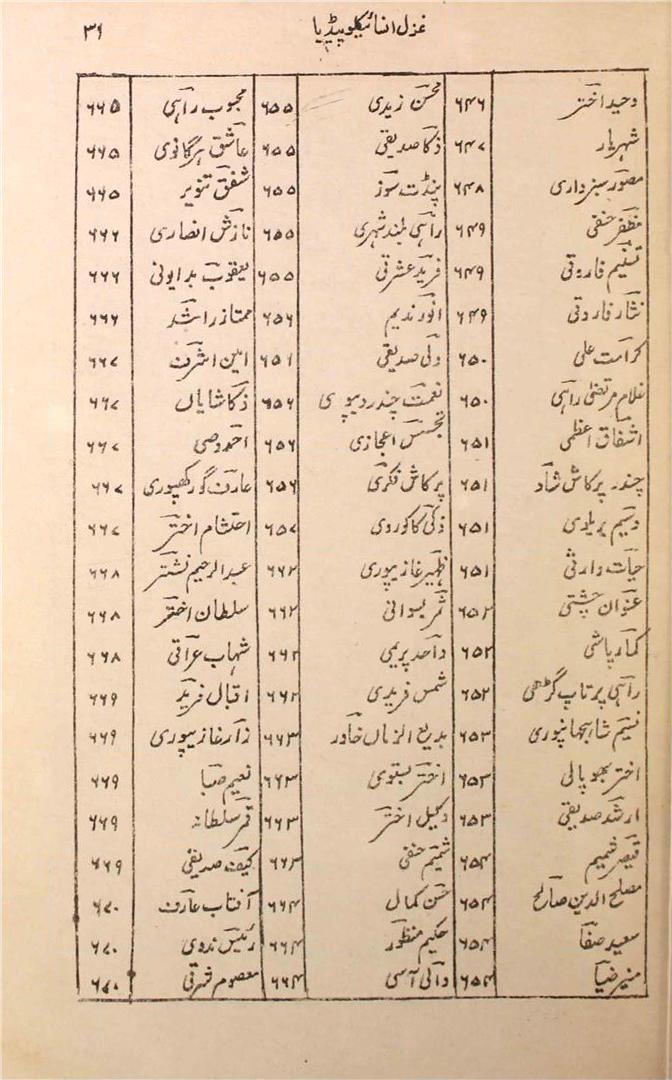 غزل انسائیکلوپیڈیا ۳۶
وحید اختر ۶۴۶ محسن زیدی ۶۵۵ محبوب راہی ۶۶۵
شہریار ۶۴۷ ذکا صدیقی ۶۵۵ عاشق ہرگانوی ۶۶۵
مصور سبزواری ۶۴۸ پنڈت سوز ۶۵۵ شفق تنویر ۶۶۵
مظفر حنفی ۶۴۹ راہی بلند شہری ۶۵۵ نازش انصاری ۶۶۶
تسنیم فاروقی ۶۴۹ فرید عشرتی ۶۵۵ یعقوب بدایونی ۶۶۶
نثار فاروقی ۶۴۹ انور ندیم ۶۵۶ ممتاز راشد ۶۶۶
کرامت علی ۶۵۰ ولی صدیقی ۶۵۶ امین اشرف ۶۶۷
غلام مرتضیٰ راہی ۶۵۰ نعمت چندر دیوپی ۶۵۶ ذکا شایاں ۶۶۷
اشفاق اعظمی ۶۵۱ تجسس اعجازی ۶۵۶ احمد وصی ۶۶۷
چندر پرکاش شاد ۶۵۱ پرکاش فکری ۶۵۶ عارف گورکھپوری ۶۶۷
وسیم بریلوی ۶۵۱ ذکی کاکوروی ۶۵۷ احتشام اختر ۶۶۷
حیات وارثی ۶۵۱ ظہیر غازیپوری ۶۶۲ عبدالرحیم نشتر ۶۶۸
عنوان چشتی ۶۵۲ ثمر بسوانی ۶۶۲ سلطان اختر ۶۶۸
کمار پاشی ۶۵۲ واحد پریمی ۶۶۲ شہاب عراقی ۶۶۸
راہی پرتاپ گڑھی ۶۵۲ شمس فریدی ۶۶۲ اقبال فرید ۶۶۹
نسیم شاہجہانپوری ۶۵۳ بدیع الزماں خاور ۶۶۳ زار غازیپوری ۶۶۹
اختر بھوپالی ۶۵۳ اختر بستوی ۶۶۳ نعیم صبا ۶۶۹
ارشد صدیقی ۶۵۳ وکیل اختر ۶۶۳ قمر سلطانہ ۶۶۹
قیصر شمیم ۶۵۴ شمیم حنفی ۶۶۳ کیف صدیقی ۶۶۹
مصلح الدین صالح ۶۵۴ حسن کمال ۶۶۴ آفتاب عارف ۶۷۰
سعید صفا ۶۵۴ حکیم منظور ۶۶۴ رئیس ندوی ۶۷۰
منیر ضیا ۶۵۴ والی آسی ۶۶۴ معصوم شرقی ۶۷۰